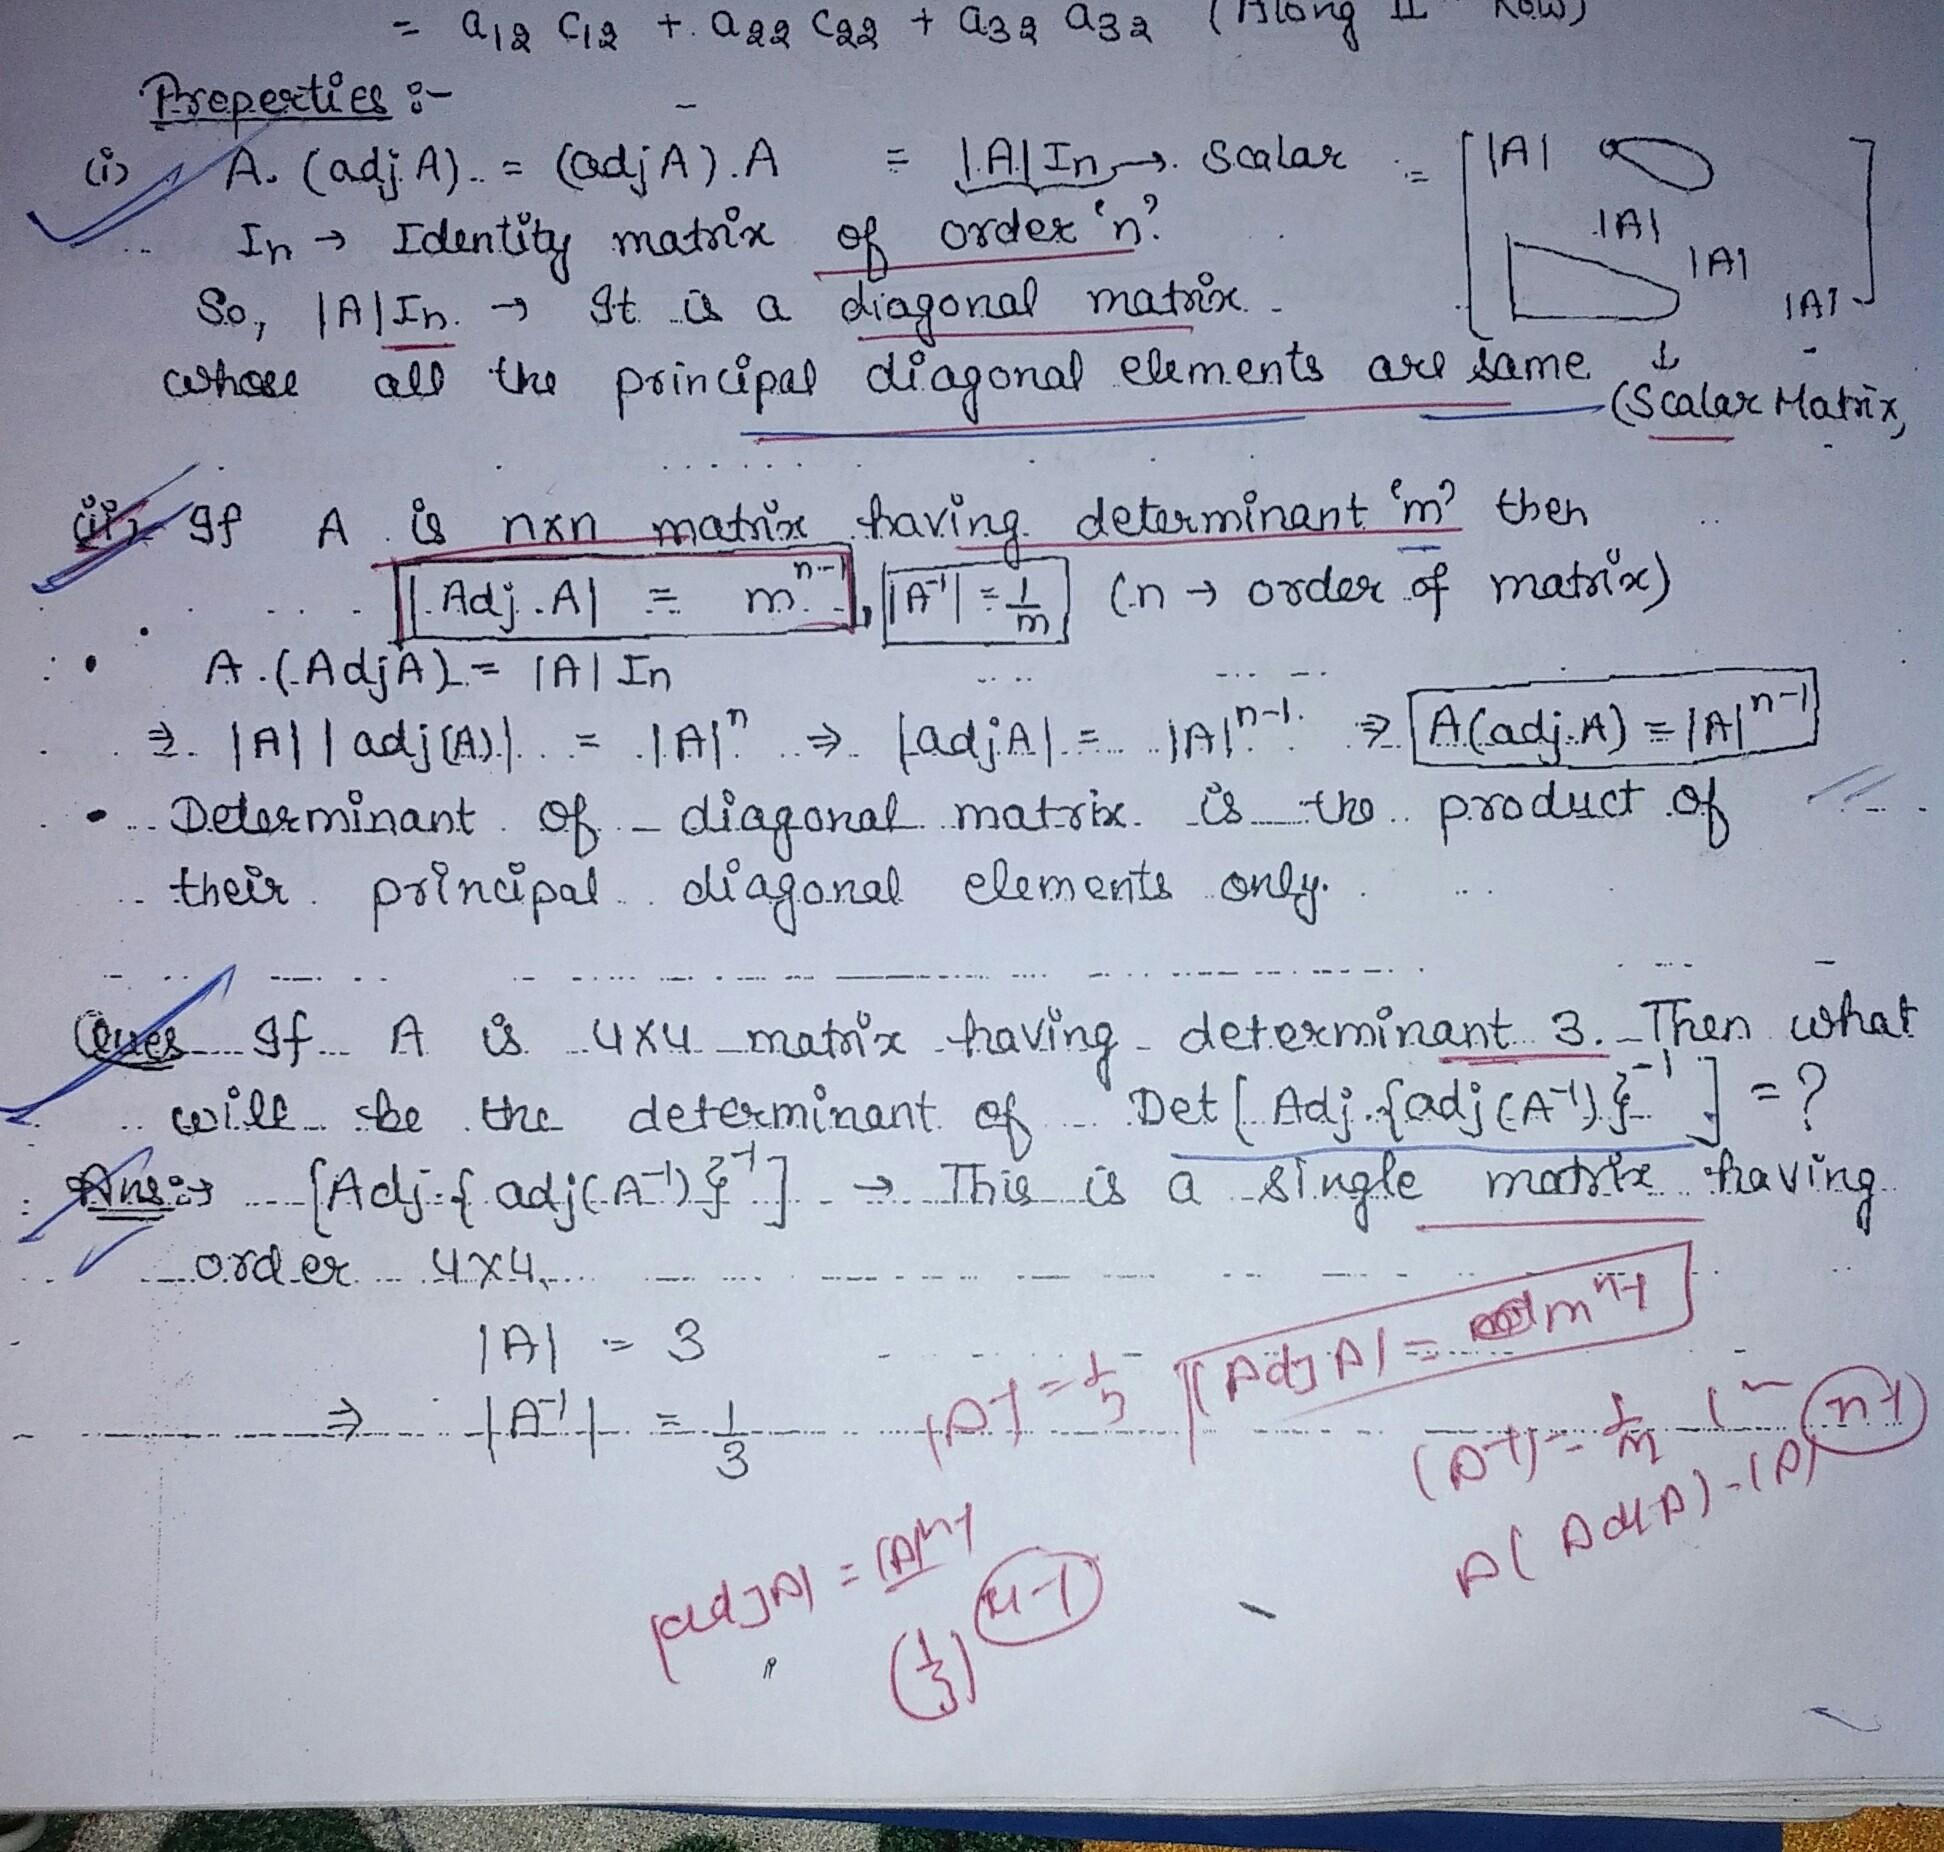 = a12 C12 + a22 C22 + a32 a32 (Along II Row)
Properties :-
(i) A. (adj. A). = (adj A). A = |A| In → Scalar = [ |A| O
|A|
|A|
|A| ]
In → Identity matrix of order 'n'
So, |A| In → It is a diagonal matrix
whose all the principal diagonal elements are same
↓
(Scalar Matrix)
(ii) If A is nxn matrix having determinant 'm' then
|Adj. A| = m^n-1, |A^-1| = 1/m (n → order of matrix)
• A.(Adj A) = |A| In
⇒ |A| |adj(A)| = |A|^n ⇒ |adj A| = |A|^n-1 ⇒ A(adj. A) = |A|^n-1
• Determinant of diagonal matrix is the product of
their principal diagonal elements only.
Ques If A is 4x4 matrix having determinant 3. Then what
will be the determinant of Det [Adj.{adj(A^-1)}^-1] = ?
Ans:→ [Adj.{adj(A^-1)}^-1] → This is a single matrix having
order 4x4.
|A| = 3
|Adj A| = m^n-1
⇒ |A^-1| = 1/3
(A^-1) = 1/m
n-1
|adj A| = |A|^n-1
A(Adj A) = |A|
(1/3)^4-1